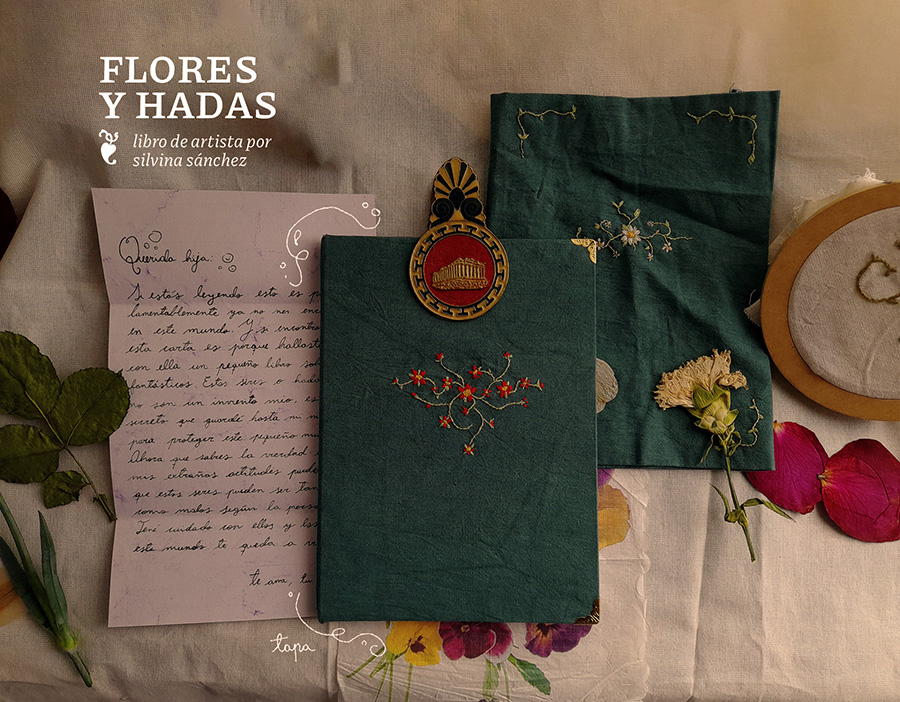 FLORES
Y HADAS
libro de artista por
silvina sánchez
Querida hija:
Si estás leyendo esto es p
lamentablemente ya no nos enc
en este mundo. Y si encontra
esta carta es porque hallast
con ella un pequeño libro sob
fantásticos. Estos seres o hada
no son un invento mío, es
secreto que guardé hasta mi m
para proteger este pequeño mu
Ahora que sabes la verdad
mis extrañas actitudes puede
que estos seres pueden ser tan
como malos según la perso
Tené cuidado con ellos y los
este mundo te queda a
te ama, tu
tapa